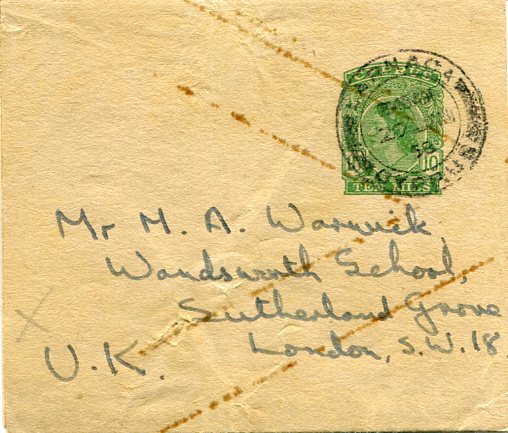 CYPRUS
10
TEN MILS
Mr M. A. Warwick,
Wandsworth School,
Sutherland Grove
London, S.W.18.
U.K.